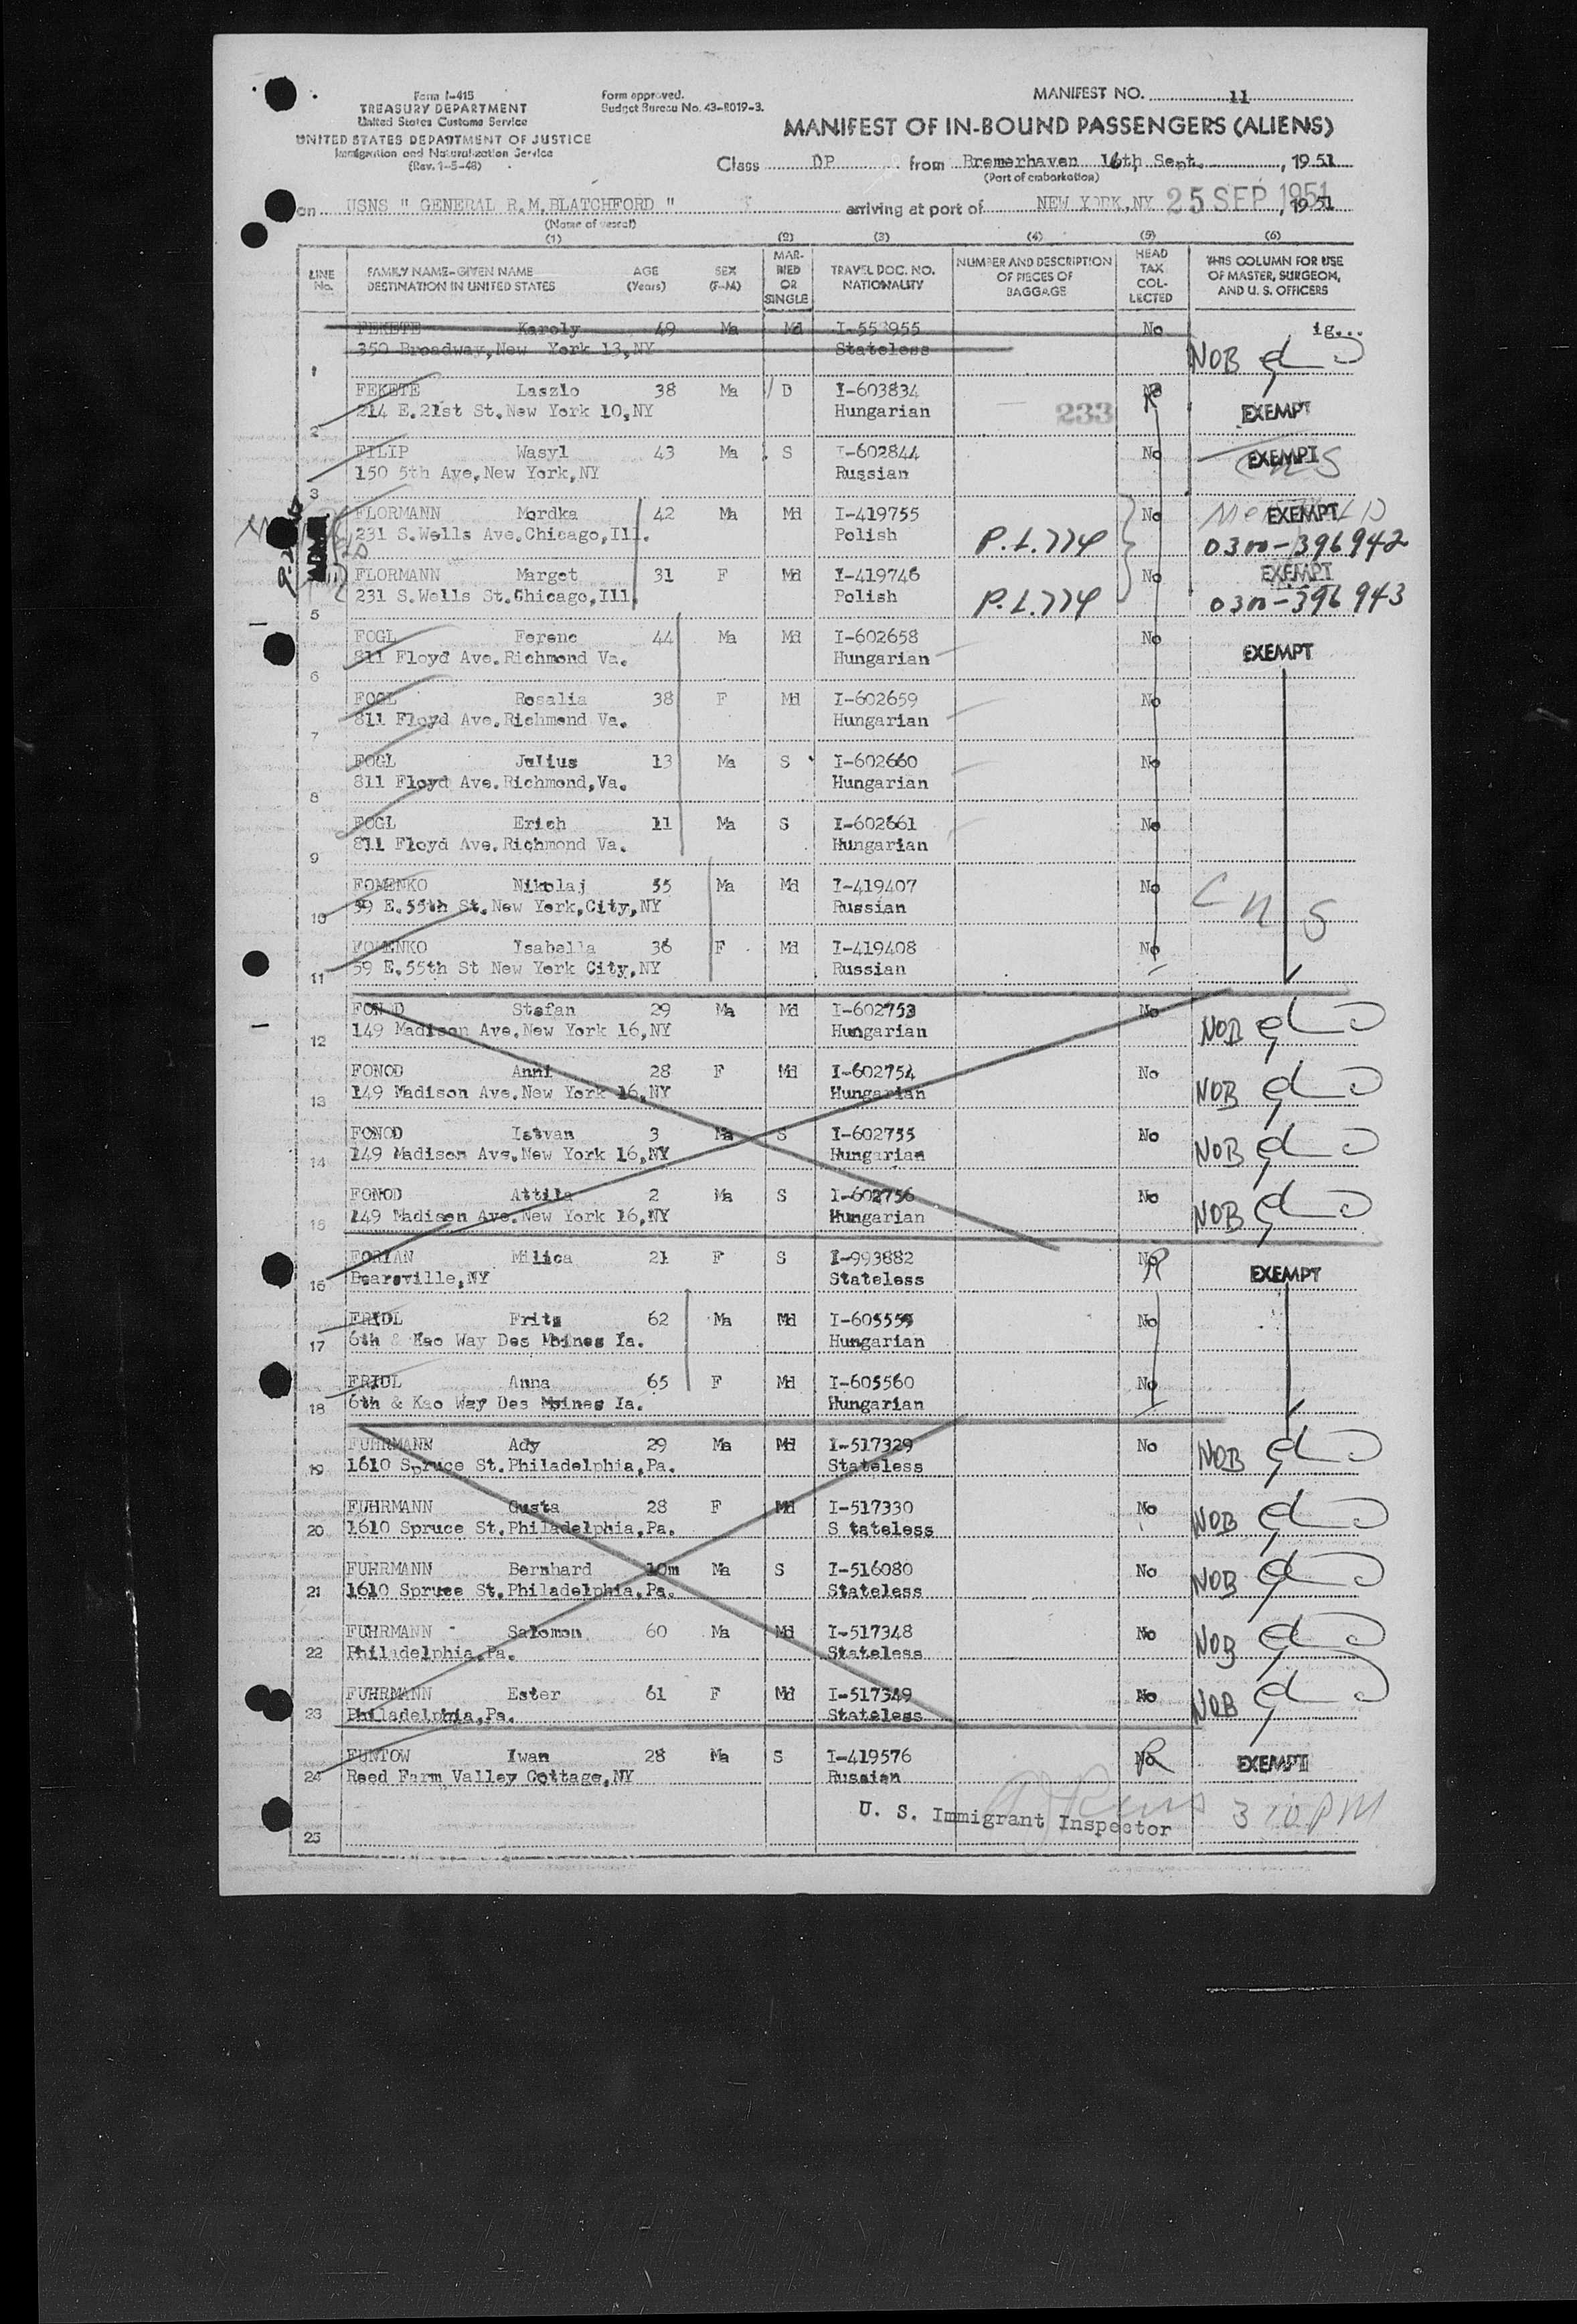 Form I-415
TREASURY DEPARTMENT
United States Customs Service
UNITED STATES DEPARTMENT OF JUSTICE
Immigration and Naturalization Service
(Rev. 1-5-48)
Form approved.
Budget Bureau No. 43-R019-3.
MANIFEST NO. 11
MANIFEST OF IN-BOUND PASSENGERS (ALIENS)
Class DP from Bremerhaven 16th Sept. , 1951
(Port of embarkation)
on USNS " GENERAL R.M.BLATCHFORD " arriving at port of NEW YORK,NY 25 SEP 1951 , 1951
(Name of vessel)
(1) (2) (3) (4) (5) (6)
LINE No. FAMILY NAME-GIVEN NAME DESTINATION IN UNITED STATES AGE (Years) SEX (F-M) MARRIED OR SINGLE TRAVEL DOC. NO. NATIONALITY NUMBER AND DESCRIPTION OF PIECES OF BAGGAGE HEAD TAX COLLECTED THIS COLUMN FOR USE OF MASTER, SURGEON, AND U. S. OFFICERS
FEKETE Karoly 49 Ma Md No
350 Broadway,New York 13,NY Stateless NOB
1
FEKETE Laszlo 38 Ma D I-603834 No
214 E.21st St.New York 10,NY Hungarian 233 EXEMPT
2
FILIP Wasyl 43 Ma S I-602844 No EXEMPT
150 5th Ave,New York,NY Russian
3
FLORMANN Mordka 42 Ma Md I-419755 No EXEMPT
231 S.Wells Ave.Chicago,Ill. Polish P.L.774 0300-396942
FLORMANN Marget 31 F Md I-419746 No EXEMPT
231 S.Wells St.Chicago,Ill. Polish P.L.774 0300-396943
5
FOGL Ferenc 44 Ma Md I-602658 No
811 Floyd Ave.Richmond Va. Hungarian EXEMPT
6
FOGL Rosalia 38 F Md I-602659 No
811 Floyd Ave.Richmond Va. Hungarian
7
FOGL Julius 13 Ma S I-602660 No
811 Floyd Ave.Richmond,Va. Hungarian
8
FOGL Erich 11 Ma S I-602661 No
811 Floyd Ave.Richmond Va. Hungarian
9
FOMENKO Nikolaj 55 Ma Md I-419407 No CNS
59 E.55th St.New York,City,NY Russian
10
FOMENKO Isabella 36 F Md I-419408 No
59 E.55th St New York City,NY Russian
11
FONOD Stefan 29 Ma Md I-602753 No
149 Madison Ave.New York 16,NY Hungarian NOB
12
FONOD Anni 28 F Md I-602754 No
149 Madison Ave.New York 16,NY Hungarian NOB
13
FONOD Istvan 3 Ma S I-602755 No
149 Madison Ave.New York 16,NY Hungarian NOB
14
FONOD Attila 2 Ma S I-602756 No
149 Madison Ave.New York 16,NY Hungarian NOB
15
FORIAN Milica 21 F S I-993882 No
Bearsville,NY Stateless EXEMPT
16
FRIDL Fritz 62 Ma Md I-605559 No
6th & Kao Way Des Moines Ia. Hungarian
17
FRIDL Anna 65 F Md I-605560 No
6th & Kao Way Des Moines Ia. Hungarian
18
FUHRMANN Ady 29 Ma Md I-517329 No
1610 Spruce St.Philadelphia,Pa. Stateless NOB
19
FUHRMANN Gusta 28 F Md I-517330 No
1610 Spruce St.Philadelphia,Pa. S tateless NOB
20
FUHRMANN Bernhard 10m Ma S I-516080 No
1610 Spruce St.Philadelphia,Pa. Stateless NOB
21
FUHRMANN Salomon 60 Ma Md I-517348 No
Philadelphia,Pa. Stateless NOB
22
FUHRMANN Ester 61 F Md I-517349 No
Philadelphia,Pa. Stateless NOB
23
FUNTOW Iwan 28 Ma S I-419576 No EXEMPT
Reed Farm Valley Cottage,NY Russian
24
U. S. Immigrant Inspector 310 PM
25